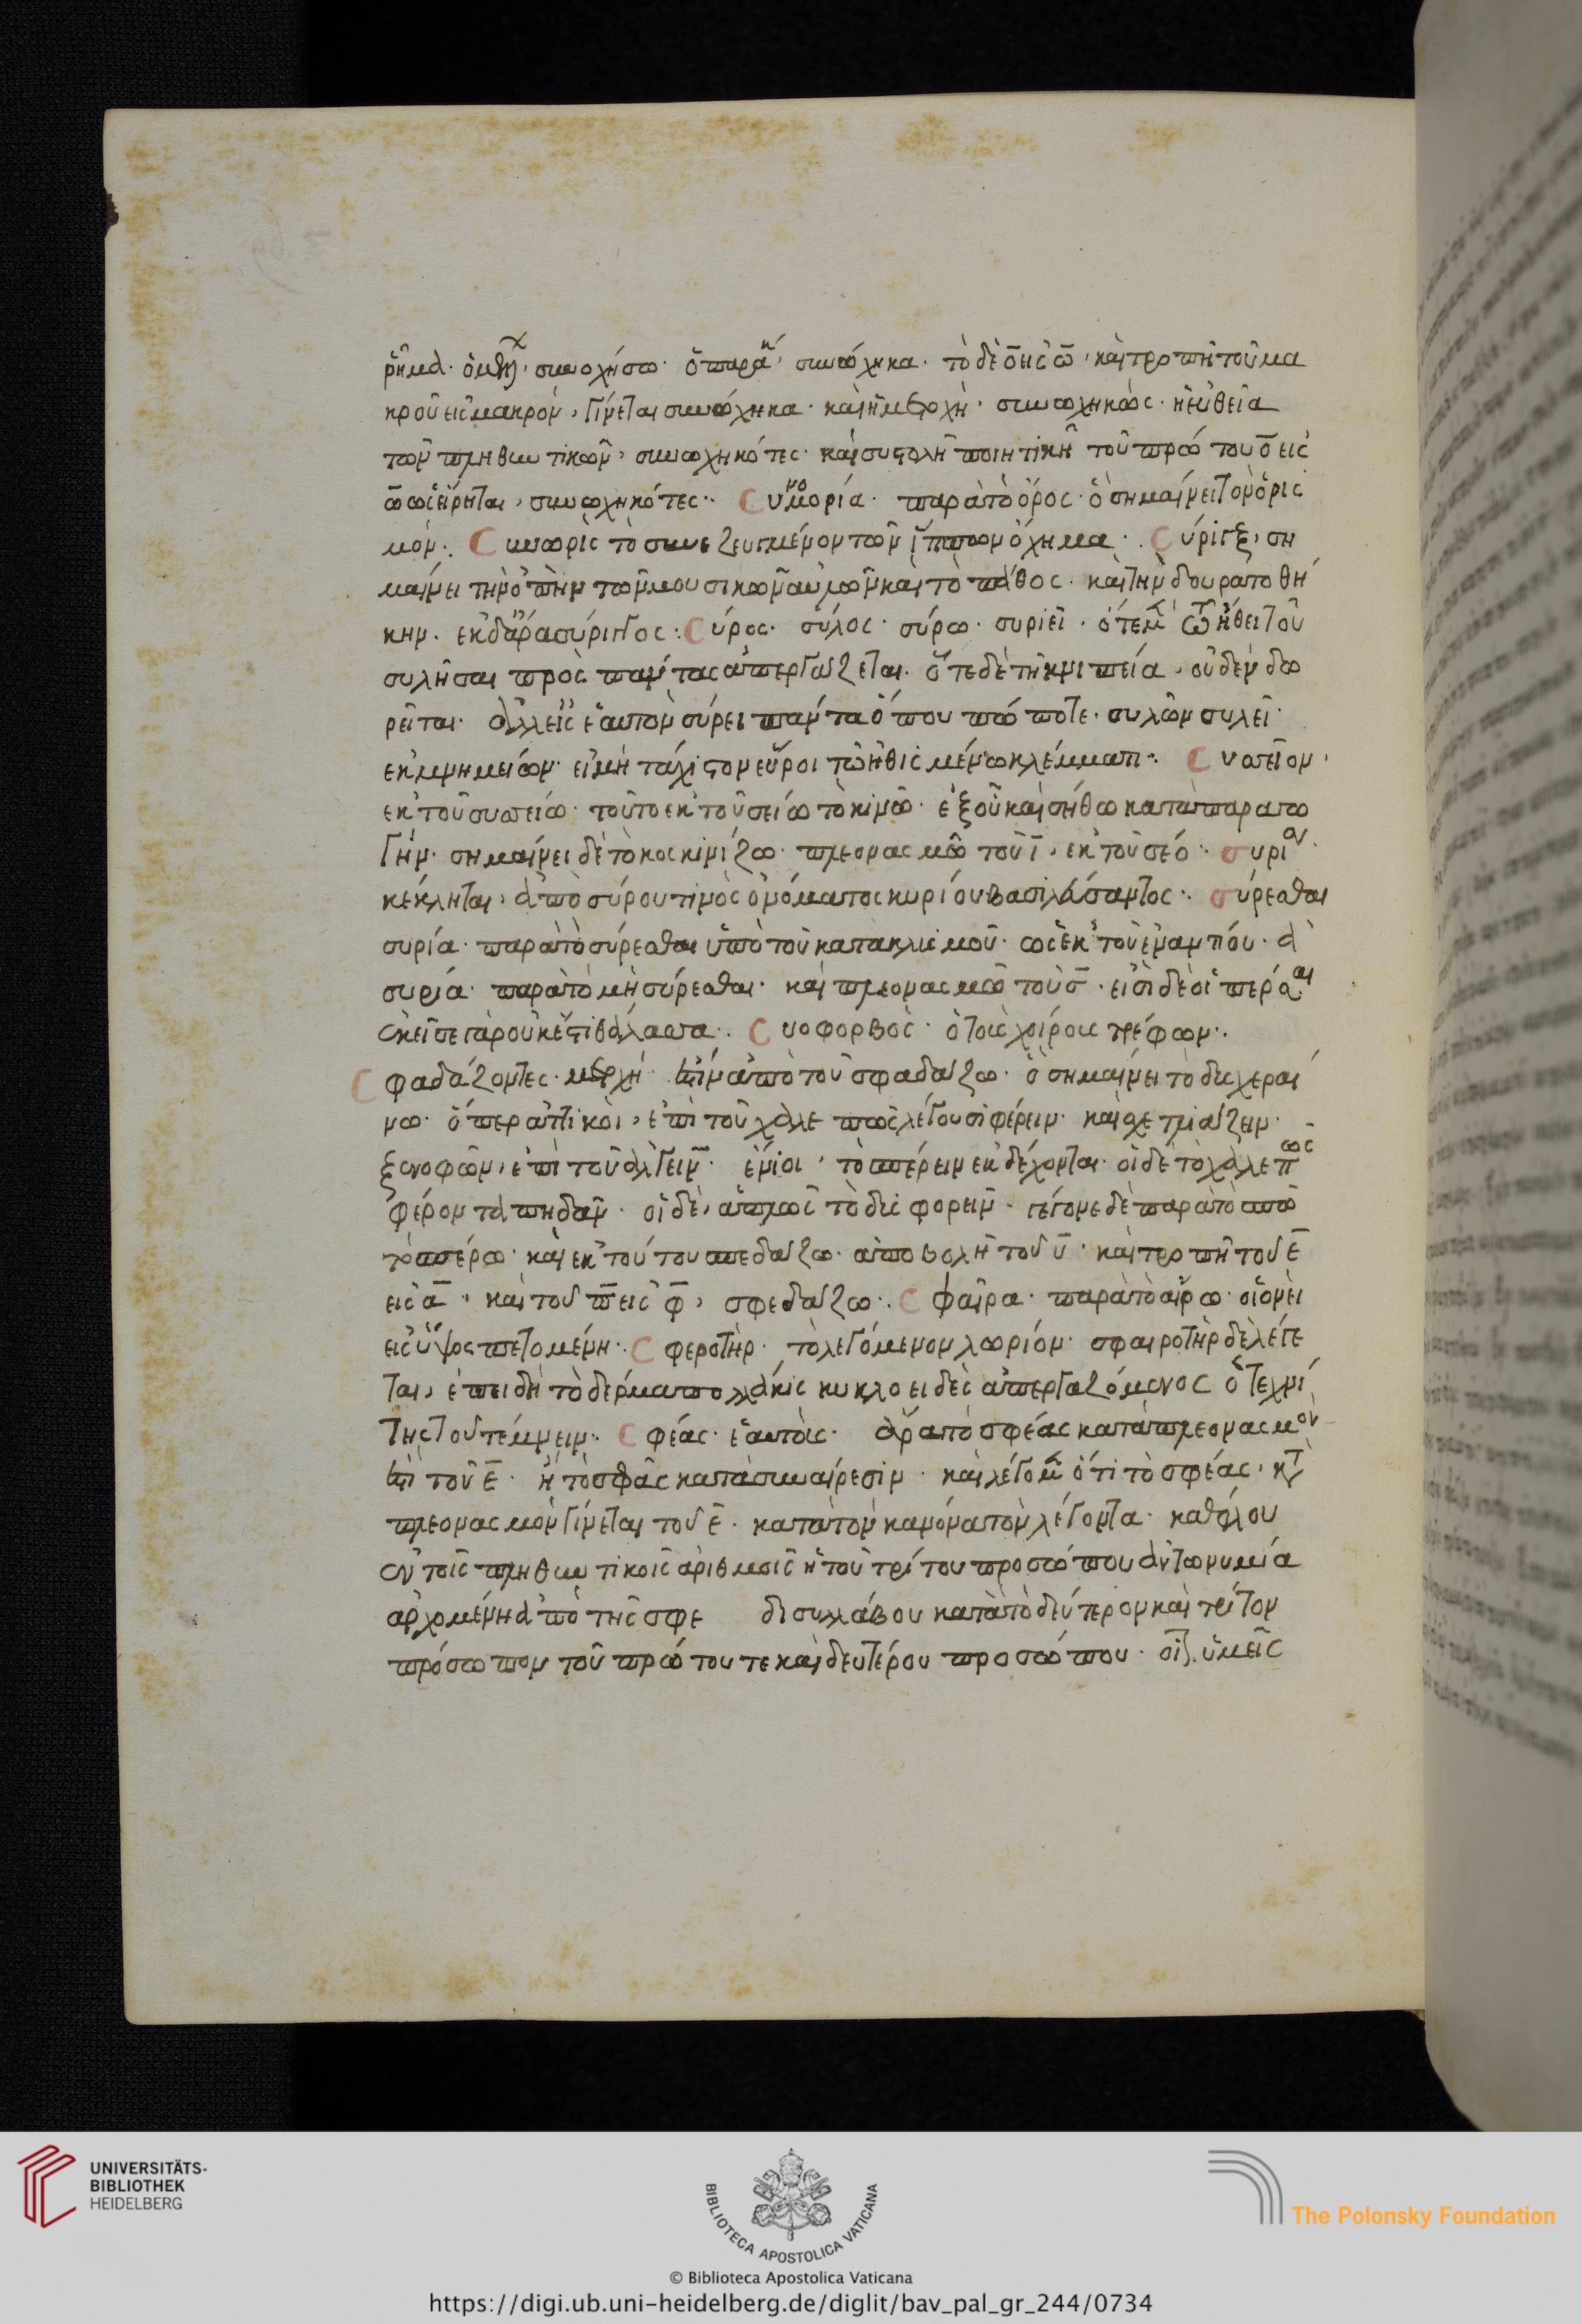 ῥῆμα· ὁ μέλλων συνοχήσω· ὁ παρακ· συνώχηκα· τὸ δὲ ο εις ω· καὶ τροπῆ τοῦ μα
κροῦ εις μακρὸν, γίνεται συνώχηκα· καὶ ἡ μετοχὴ· συνωχηκὼς· ἡ εὐθεῖα
τῶν πληθυντικῶν, συνωχηκότες· καὶ συστολῆ ποιητικῆ τοῦ πρώτου ο εις
ω ὡς εἴρηται, συνωχηκότες·· Συμμορία· παρὰ τὸ ὅρος· ὃ σημαίνει τὸν ὁρις
μόν·. Συνωρὶς τὸ συνεζευγμένον τῶν ἵππων ὄχημα·. Σύριγξ, ση
μαίνει τὴν ὀπὴν τῶν μουσικῶν αὐλῶν καὶ τὸ πάθος· καὶ τὴν δουρατοθή
κην· ἐκ δ' ἄρα σύριγγος·. Σύρος· σύλος· σύρω· συριεῖ· ὅτε μὲν ἤθει τοῦ
συλῆσαι πρὸς πάντας ἀπεργάζεται· ὅτε δὲ τῆ κνιπεία· οὐδὲν δω
ρεῖται· ἀλλ' εἰς ἑαυτὸν σύρει πάντα ὅπου πώποτε· συλῶν συλεῖ·
ἐκ μνημείων· εἰ μὴ τάχιστον εὕροι τῶ ἠθισμένω κλέμματι·. Συσεῖον·
ἐκ τοῦ συσείω· τοῦτο ἐκ τοῦ σείω τὸ κινῶ· ἐξ οὗ καὶ σήθω κατὰ παραγω
γήν· σημαίνει δὲ τὸ κοσκινίζω· πλεονασμῶ τοῦ ι, ἐκ τοῦ σέο·. συρία
κέκληται, ἀπὸ σύρου τινὸς ὀνόματος κυρίου βασιλεύσαντος·. σύρεσθαι
συρία· παρὰ τὸ σύρεσθαι ὑπὸ τοῦ κατακλισμοῦ· ὡς ἐκ τοῦ ἐναντίου· ἀ
συρία· παρὰ τὸ μὴ σύρεσθαι· καὶ πλεονασμῶ τοῦ σ· εἰσὶ δὲ οἱ πέρσαι
ἐκεῖσε γὰρ οὐκέτι θάλασσα·. Συοφορβὸς· ὁ τοὺς χοίρους τρέφων·.
Σφαδάζοντες· μετοχὴ· ἐπὶ ἀπὸ τοῦ σφαδάζω· ὃ σημαίνει τὸ δυσχεραί
νω· ὅπερ ἀττικοὶ, ἐπὶ τοῦ χαλεπῶς λέγουσι φέρειν· καὶ σχετλιάζειν·
ξενοφῶν, ἐπὶ τοῦ ἀλγεῖν· ἔνιοι, τὸ σπέρειν ἐκδέχονται· οἱ δὲ τὸ χαλεπῶς
φέροντα πηδᾶν· οἱ δὲ, ἁπλῶς τὸ δυσφορεῖν· γέγονε δὲ παρὰ τὸ σπῶ
τὸ σπέρω· καὶ ἐκ τούτου σπεδάζω· ἀποβολῆ τοῦ υ· καὶ τροπῆ τοῦ ε
εις α, καὶ τοῦ π εις φ, σφεδάζω·. Σφαῖρα· παρὰ τὸ αἴρω· οἱονεὶ
εἰς ὕψος πετομένη·. Σφεροτὴρ· τὸ λεγόμενον λωρίον· σφαιροτὴρ δὲ λέγε
ται, ἐπειδὴ τὸ δέρμα πολλάκις κυκλοειδὲς ἀπεργαζόμενος ὁ τεχνί
της τοῦ τέμνειν·. Σφέας· ἑαυτοὺς· ἆρα τὸ σφέας κατὰ πλεονασμὸν
ἐπὶ τοῦ ε· ἢ τὸ σφᾶς κατὰ συναίρεσιν· καὶ λέγομεν ὅτι τὸ σφέας, κατὰ
πλεονασμὸν γίνεται τοῦ ε· κατὰ τὸν κανόνα τὸν λέγοντα· καθόλου
ἐν τοῖς πληθυντικοῖς ἀριθμοῖς ἡ τοῦ τρίτου προσώπου ἀντωνυμία
ἀρχομένη ἀπὸ τῆς σφε δισυλλάβου κατὰ τὸ δεύτερον καὶ τρίτον
πρόσωπον τοῦ πρώτου τε καὶ δευτέρου προσώπου· οἷον ὑμεῖς
UNIVERSITÄTS-
BIBLIOTHEK
HEIDELBERG
BIBLIOTECA APOSTOLICA VATICANA
The Polonsky Foundation
© Biblioteca Apostolica Vaticana
https://digi.ub.uni-heidelberg.de/diglit/bav_pal_gr_244/0734